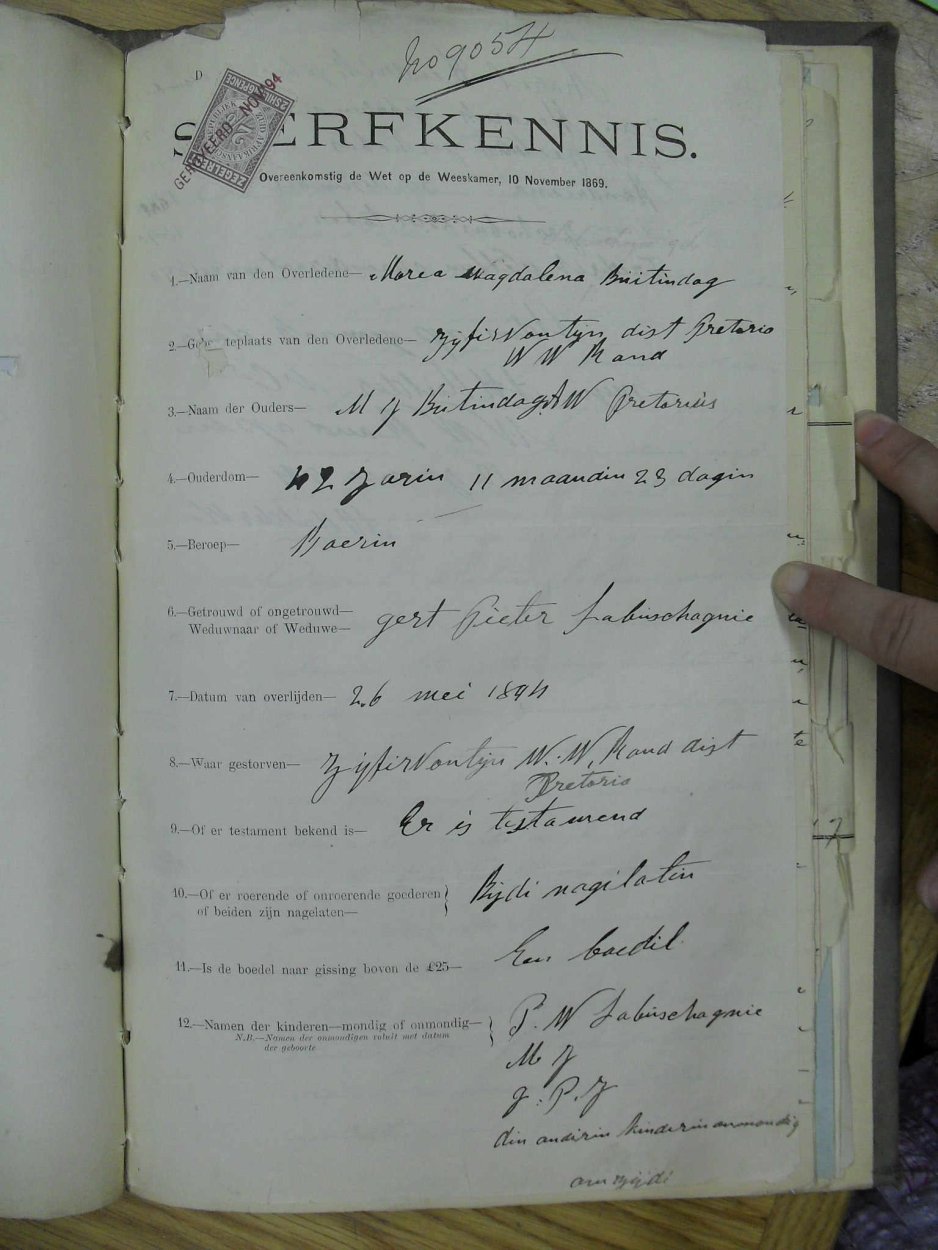 No 9054
D
GEROYEERD NOV 94
ZEGELREGT
2 SHILLINGPENCE
STERFKENNIS.
Overeenkomstig de Wet op de Weeskamer, 10 November 1869.
1.—Naam van den Overledene— Marea Magdalena Buitindag
2.—Geboorteplaats van den Overledene— Zyfirvontyn dist Pretoria
W W Rand
3.—Naam der Ouders— M J Buitindag A W Pretorius
4.—Ouderdom— 42 Jarin 11 maandin 23 dagin
5.—Beroep— Boerin
6.—Getrouwd of ongetrouwd—
Weduwnaar of Weduwe— gert Pieter Labuschagnie
7.—Datum van overlijden— 26 mei 1894
8.—Waar gestorven— Zyfirvontyn W. W. Rand dist
Pretoria
9.—Of er testament bekend is— Er is testamend
10.—Of er roerende of onroerende goederen
of beiden zijn nagelaten— Bijdi nagilatin
11.—Is de boedel naar gissing boven de £25— Een boedil
12.—Namen der kinderen—mondig of onmondig— P. W Labuschagnie
N.B.—Namen der onmondigen voluit met datum
der geboorte
M J
J. P. J
din andirin kindirin onmondig